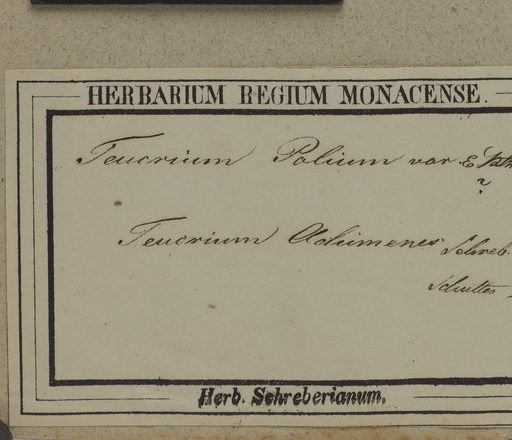 HERBARIUM REGIUM MONACENSE.
Teucrium Polium var. E
?
Teucrium Achimenes Schreb.
Schultes
Herb. Schreberianum.